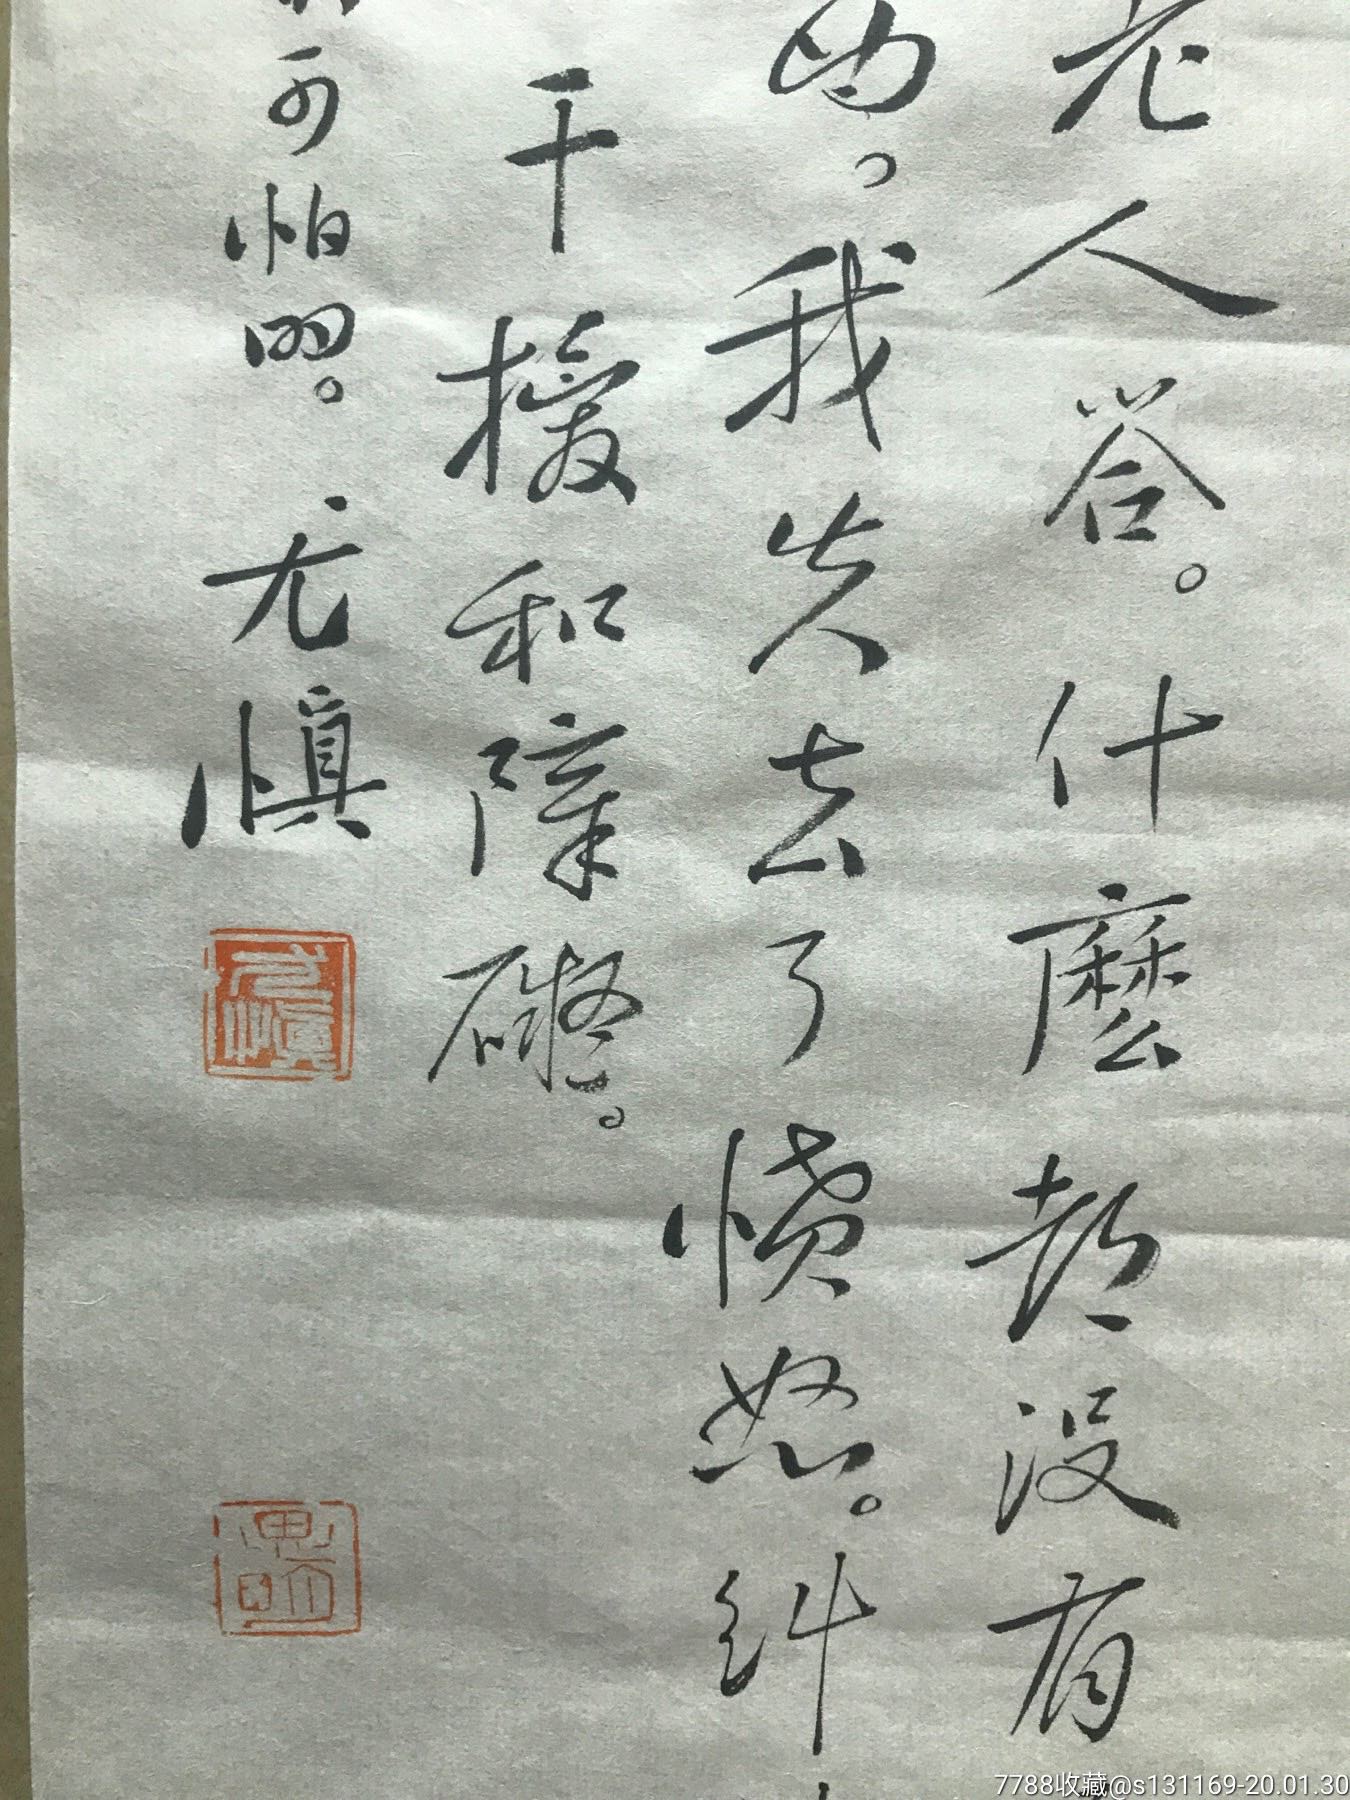 老人答。什麽都没有
的。我失去了愤怒。纠
干擾和障礙。
可怕的。尤慎
尤慎
7788收藏@s131169-20.01.30